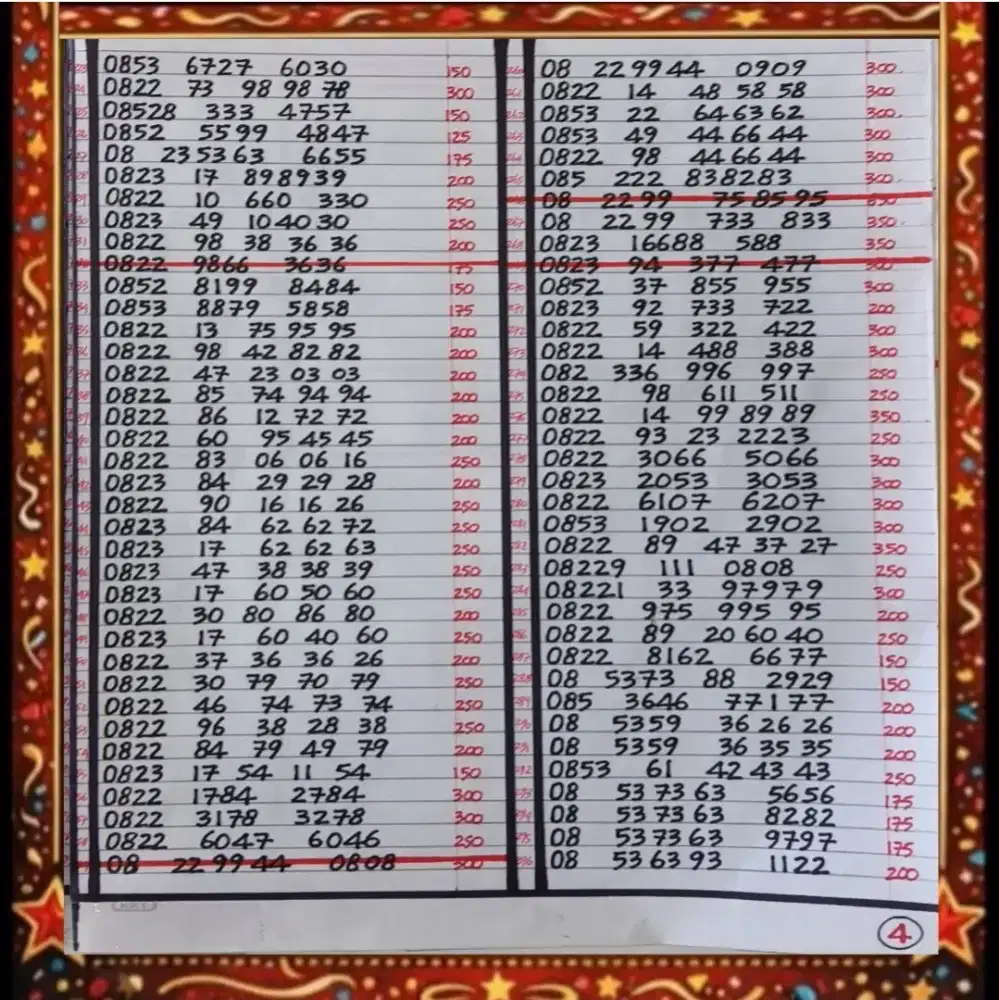 0853 6727 6030 150
0822 73 98 98 78 300
08528 333 4757 150
0852 5599 4847 125
08 23 53 63 6655 175
0823 17 898939 200
0822 10 660 330 250
0823 49 10 40 30 250
0822 98 38 36 36 200
0822 9866 3636 175
0852 8199 8484 150
0853 8879 5858 175
0822 13 75 95 95 200
0822 98 42 82 82 200
0822 47 23 03 03 200
0822 85 74 94 94 200
0822 86 12 72 72 200
0822 60 95 45 45 200
0822 83 06 06 16 250
0823 84 29 29 28 200
0822 90 16 16 26 250
0823 84 62 62 72 250
0823 17 62 62 63 250
0823 47 38 38 39 250
0823 17 60 50 60 250
0822 30 80 86 80 200
0823 17 60 40 60 250
0822 37 36 36 26 200
0822 30 79 70 79 250
0822 46 74 73 74 250
0822 96 38 28 38 250
0822 84 79 49 79 200
0823 17 54 11 54 150
0822 1784 2784 300
0822 3178 3278 300
0822 6047 6046 250
08 22 99 44 0808 300
08 22 99 44 0909 300
0822 14 48 58 58 300
0853 22 64 63 62 300
0853 49 44 66 44 300
0822 98 44 66 44 300
085 222 838283 300
08 22 99 75 85 95
08 22 99 733 833 350
0823 16688 588 350
0823 94 377 477
0852 37 855 955 300
0823 92 733 722 200
0822 59 322 422 300
0822 14 488 388 300
082 336 996 997 250
0822 98 611 511 250
0822 14 99 89 89 350
0822 93 23 2223 250
0822 3066 5066 300
0823 2053 3053 300
0822 6107 6207 300
0853 1902 2902 300
0822 89 47 37 27 350
08229 111 0808 250
08221 33 97979 300
0822 975 995 95 200
0822 89 20 60 40 250
0822 8162 6677 150
08 5373 88 2929 150
085 3646 77177 200
08 5359 36 26 26 200
08 5359 36 35 35 200
0853 61 42 43 43 250
08 53 73 63 5656 175
08 53 73 63 8282 175
08 53 73 63 9797 175
08 53 63 93 1122 200
4